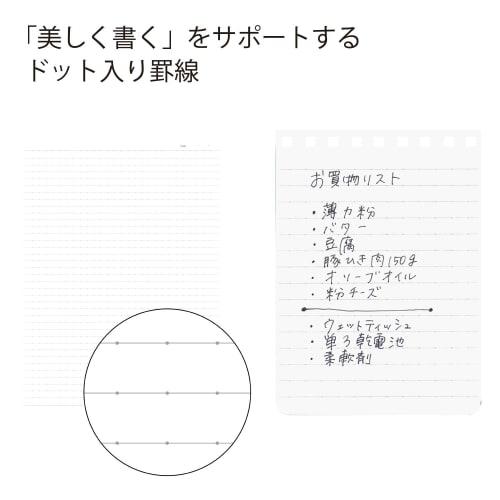 「美しく書く」をサポートする
ドット入り罫線
お買物リスト
・薄力粉
・バター
・豆腐
・豚ひき肉150g
・オリーブオイル
・粉チーズ
・ウェットティッシュ
・単3乾電池
・柔軟剤